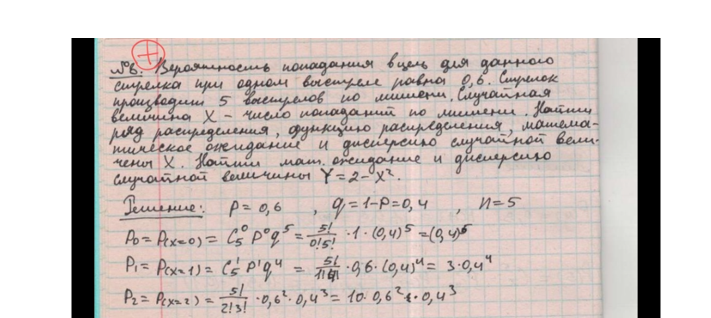 №8. Вероятность попадания в цель для данного
стрелка при одном выстреле равна 0,6. Стрелок
производит 5 выстрелов по мишени. Случайная
величина X – число попаданий по мишени. Найти
ряд распределения, функцию распределения, матема-
тическое ожидание и дисперсию случайной вели-
чены X. Найти мат. ожидание и дисперсию
случайной величины Y=2-X².
Решение: P=0,6 , q=1-P=0,4 , n=5
P₀=P(x=0) = C₅⁰ P⁰q⁵ = 5!/0!5! · 1 · (0,4)⁵ = (0,4)⁵
P₁=P(x=1) = C₅¹ P¹q⁴ = 5!/1!4! · 0,6 · (0,4)⁴ = 3·0,4⁴
P₂=P(x=2) = 5!/2!3! · 0,6² · 0,4³ = 10·0,6² · 0,4³